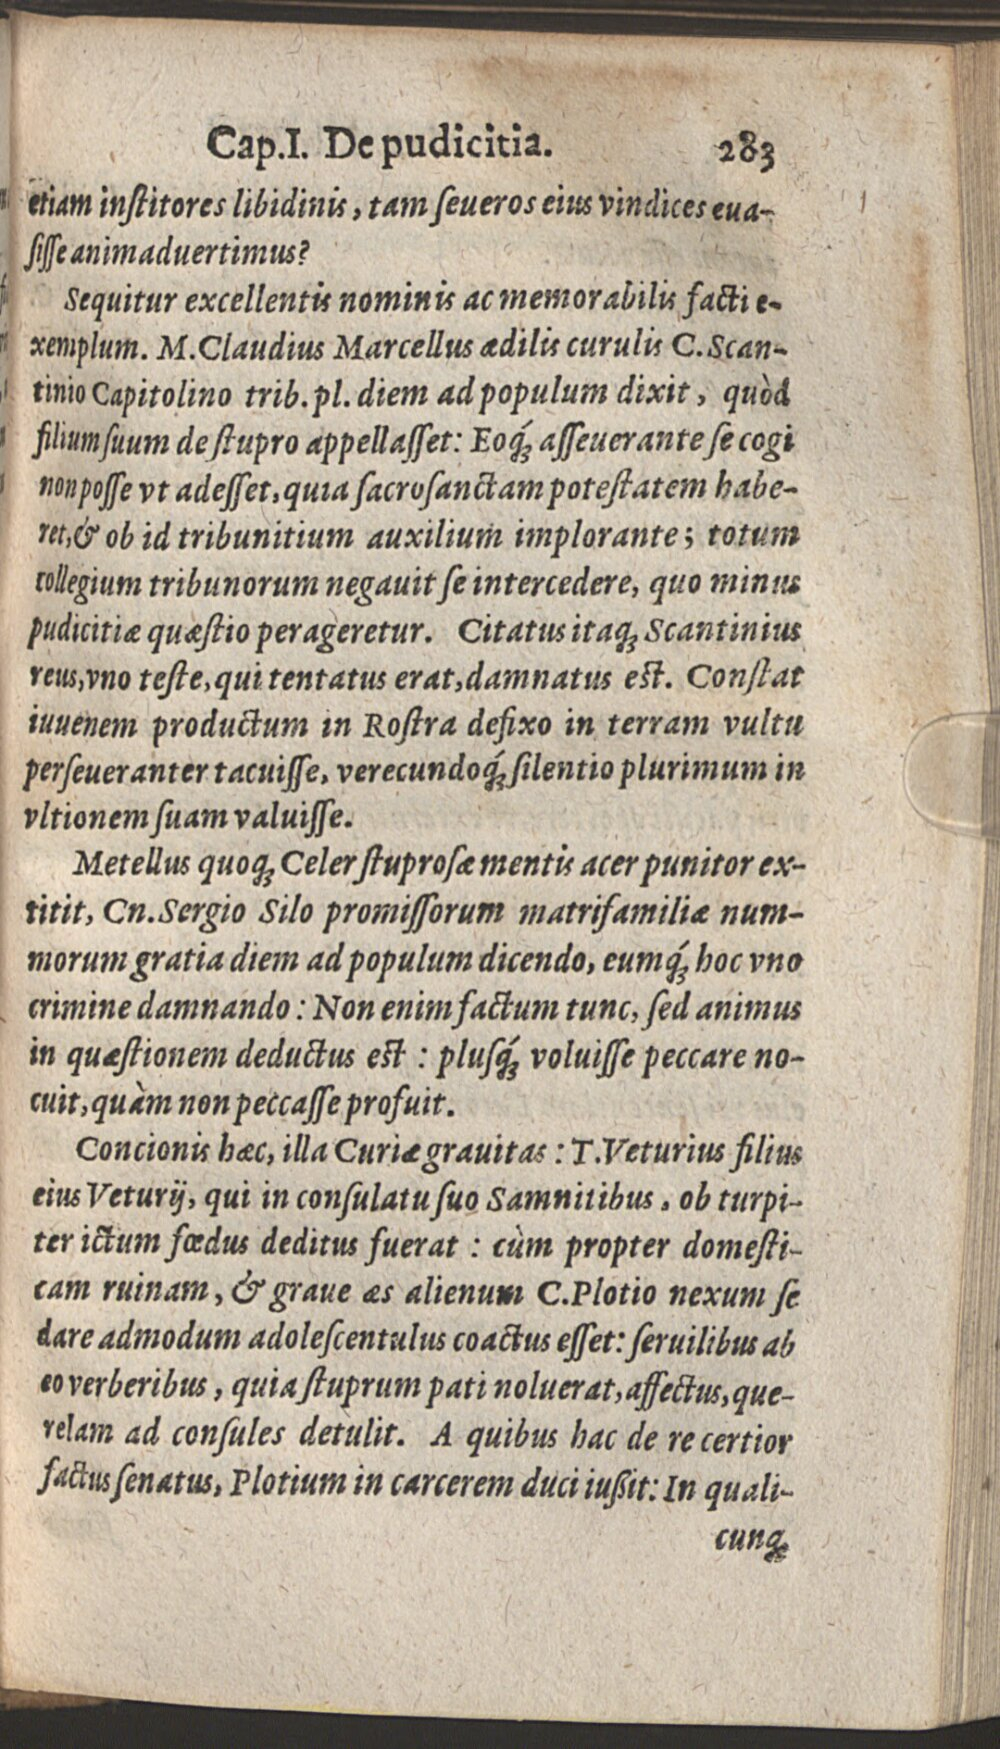 Cap.I. De pudicitia. 283
etiam inſtitores libidinis, tam ſeueros eius vindices eua-
ſiſſe animaduertimus?
Sequitur excellentis nominis ac memorabilis facti e-
xemplum. M.Claudius Marcellus ædilis curulis C.Scan-
tinio Capitolino trib.pl. diem ad populum dixit, quòd
filium ſuum de ſtupro appellaſſet: Eoq́; aſſeuerante ſe cogi
non poſſe vt adeſſet, quia ſacroſanctam poteſtatem habe-
ret, & ob id tribunitium auxilium implorante; totum
collegium tribunorum negauit ſe intercedere, quo minus
pudicitiæ quæſtio perageretur. Citatus itaq; Scantinius
reus, vno teſte, qui tentatus erat, damnatus est. Conſtat
iuuenem productum in Roſtra defixo in terram vultu
perſeueranter tacuiſſe, verecundoq́; ſilentio plurimum in
vltionem ſuam valuiſſe.
Metellus quoq; Celer ſtuproſæ mentis acer punitor ex-
titit, Cn.Sergio Silo promiſſorum matrifamiliæ num-
morum gratia diem ad populum dicendo, eumq́; hoc vno
crimine damnando: Non enim factum tunc, ſed animus
in quæſtionem deductus eſt : pluſq́; voluiſſe peccare no-
cuit, quàm non peccaſſe profuit.
Concionis hæc, illa Curiæ grauitas : T.Veturius filius
eius Veturij, qui in conſulatu ſuo Samnitibus, ob turpi-
ter ictum fœdus deditus fuerat : cùm propter domeſti-
cam ruinam, & graue æs alienum C.Plotio nexum ſe
dare admodum adoleſcentulus coactus eſſet: ſeruilibus ab
eo verberibus, quia ſtuprum pati noluerat, affectus, que-
relam ad conſules detulit. A quibus hac de re certior
factus ſenatus, Plotium in carcerem duci iußit: In quali-
cunq;